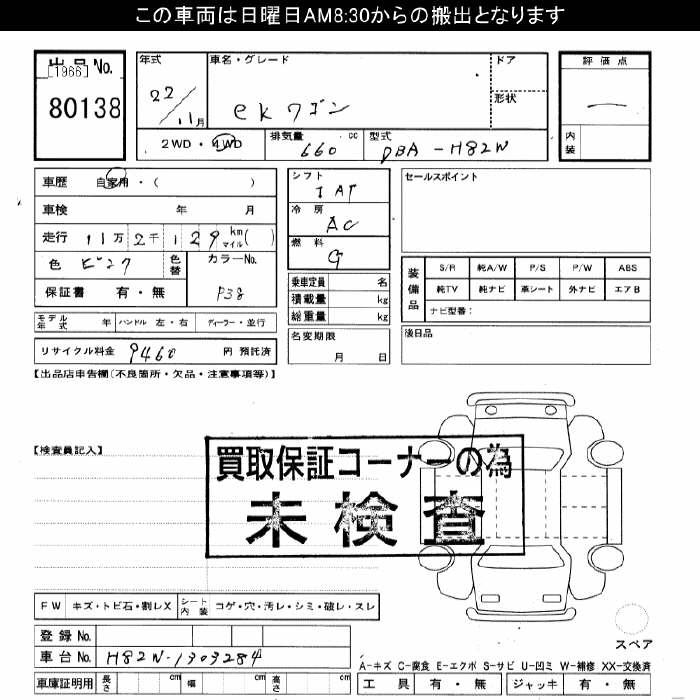 この車両は日曜日AM8:30からの搬出となります
出品No.
[1966]
80138
年式
22/11月
車名・グレード
ekワゴン
ドア
形状
評価点
—
内装
2WD・4WD
排気量
660 cc
型式
DBA-H82W
車歴 自家用・( )
車検 年 月
走行 11万 2千 129 km マイル( )
色 ピンク
色替
カラーNo.
P38
保証書 有・無
シフト
IAT
冷房
AC
燃料
G
乗車定員 名
積載量 kg
総重量 kg
名変期限
月 日
セールスポイント
装備品
S/R 純A/W P/S P/W ABS
純TV 純ナビ 革シート 外ナビ エアB
ナビ型番:
後日品
モデル年式 年 ハンドル 左・右 ディーラー・並行
リサイクル料金 9460 円 預託済
【出品店申告欄(不良箇所・欠品・注意事項等)】
【検査員記入】
買取保証コーナーの為
未検査
FW キズ・トビ石・割レX シート内装 コゲ・穴・汚レ・シミ・破レ・スレ
登録No.
車台No. H82W-1303284
車庫証明用 長さ cm 幅 cm 高さ cm
スペア
A-キズ C-腐食 E-エクボ S-サビ U-凹ミ W-補修 XX-交換済
工具 有・無 ジャッキ 有・無